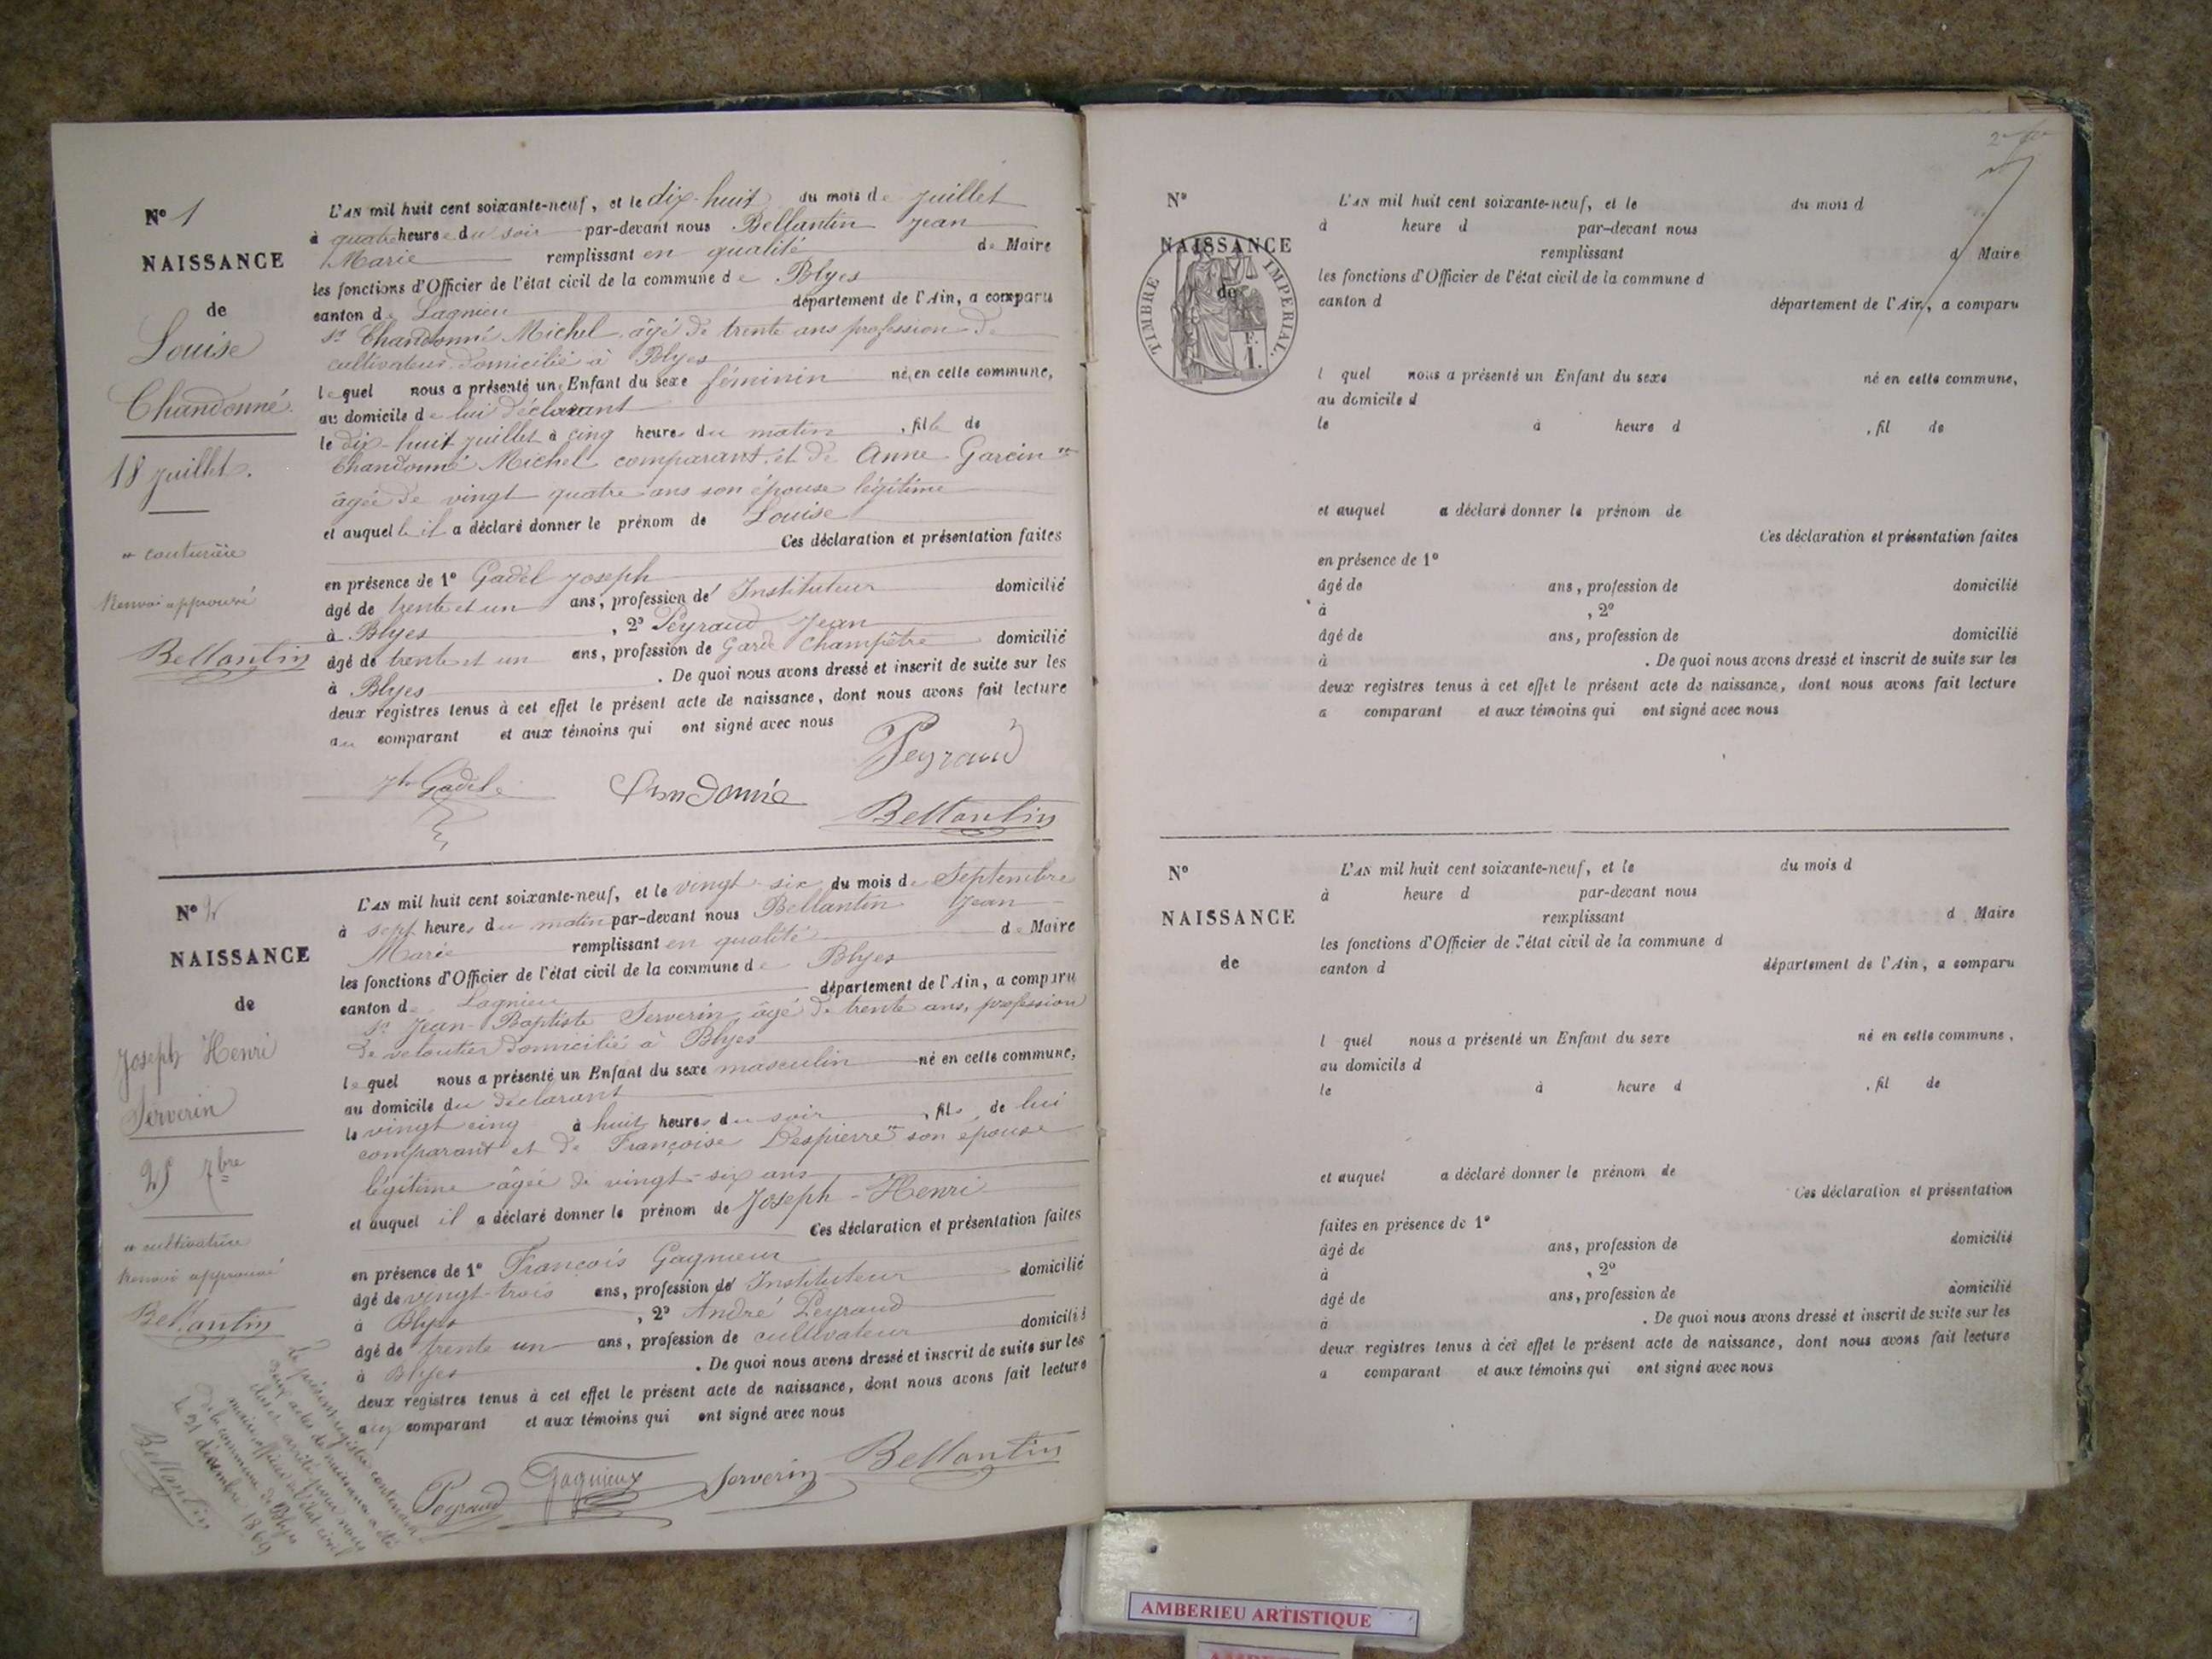 N° 1
NAISSANCE
de
Louise
Chandonné
18 juillet.
" couturière
Renvoi approuvé
Bellantin
L'AN mil huit cent soixante-neuf, et le dix-huit du mois de juillet
à quatre heures du soir par-devant nous Bellantin Jean
Marie remplissant en qualité de Maire
les fonctions d'Officier de l'état civil de la commune de Blyes
canton de Lagnieu département de l'Ain, a comparu
sr Chandonné Michel âgé de trente ans profession de
cultivateur domicilié à Blyes
lequel nous a présenté une Enfant du sexe féminin née en cette commune,
au domicile de lui déclarant
le dix-huit juillet à cinq heures du matin, fille de
Chandonné Michel comparant et de Anne Garcin "
âgée de vingt quatre ans son épouse légitime
et auquelle il a déclaré donner le prénom de Louise
Ces déclaration et présentation faites
en présence de 1° Gadel Joseph
âgé de trente et un ans, profession de Instituteur domicilié
à Blyes, 2° Peyraud Jean
âgé de trente et un ans, profession de Garde Champêtre domicilié
à Blyes. De quoi nous avons dressé et inscrit de suite sur les
deux registres tenus à cet effet le présent acte de naissance, dont nous avons fait lecture
au comparant et aux témoins qui ont signé avec nous
Peyraud
Jh Gadel
Chandonné
Bellantin
N° 2
NAISSANCE
de
Joseph Henri
Serverin
25 7bre
" cultivatrice
Renvoi approuvé
Bellantin
L'AN mil huit cent soixante-neuf, et le vingt-six du mois de Septembre
à sept heures du matin par-devant nous Bellantin Jean
Marie remplissant en qualité de Maire
les fonctions d'Officier de l'état civil de la commune de Blyes
canton de Lagnieu département de l'Ain, a comparu
sr Jean-Baptiste Serverin, âgé de trente ans, profession
de veloutier domicilié à Blyes
lequel nous a présenté un Enfant du sexe masculin né en cette commune,
au domicile du déclarant
le vingt cinq à huit heures du soir, fils de lui
comparant et de Françoise Despierre " son épouse
légitime âgée de vingt-six ans
et auquel il a déclaré donner le prénom de Joseph-Henri
Ces déclaration et présentation faites
en présence de 1° François Gagnieux
âgé de vingt-trois ans, profession de Instituteur domicilié
à Blyes, 2° André Peyraud
âgé de trente un ans, profession de cultivateur domicilié
à Blyes. De quoi nous avons dressé et inscrit de suite sur les
deux registres tenus à cet effet le présent acte de naissance, dont nous avons fait lecture
au comparant et aux témoins qui ont signé avec nous
Peyraud Gagnieux Serverin Bellantin
Le présent registre contenant
deux actes de naissance a été
clos et arrêté par nous
maire officier de l'état civil
de la commune de Blyes
le 31 décembre 1869
Bellantin
N°
NAISSANCE
de
TIMBRE IMPERIAL.
1 F.
L'AN mil huit cent soixante-neuf, et le du mois d
à heure d par-devant nous
remplissant d Maire
les fonctions d'Officier de l'état civil de la commune d
canton d département de l'Ain, a comparu
l quel nous a présenté un Enfant du sexe né en cette commune,
au domicile d
le à heure d , fil de
et auquel a déclaré donner le prénom de
Ces déclaration et présentation faites
en présence de 1°
âgé de ans, profession de domicilié
à , 2°
âgé de ans, profession de domicilié
à . De quoi nous avons dressé et inscrit de suite sur les
deux registres tenus à cet effet le présent acte de naissance, dont nous avons fait lecture
a comparant et aux témoins qui ont signé avec nous
N°
NAISSANCE
de
L'AN mil huit cent soixante-neuf, et le du mois d
à heure d par-devant nous
remplissant d Maire
les fonctions d'Officier de l'état civil de la commune d
canton d département de l'Ain, a comparu
l quel nous a présenté un Enfant du sexe né en cette commune,
au domicile d
le à heure d , fil de
et auquel a déclaré donner le prénom de
Ces déclaration et présentation
faites en présence de 1°
âgé de ans, profession de domicilié
à , 2°
âgé de ans, profession de domicilié
à . De quoi nous avons dressé et inscrit de suite sur les
deux registres tenus à cet effet le présent acte de naissance, dont nous avons fait lecture
a comparant et aux témoins qui ont signé avec nous
AMBERIEU ARTISTIQUE